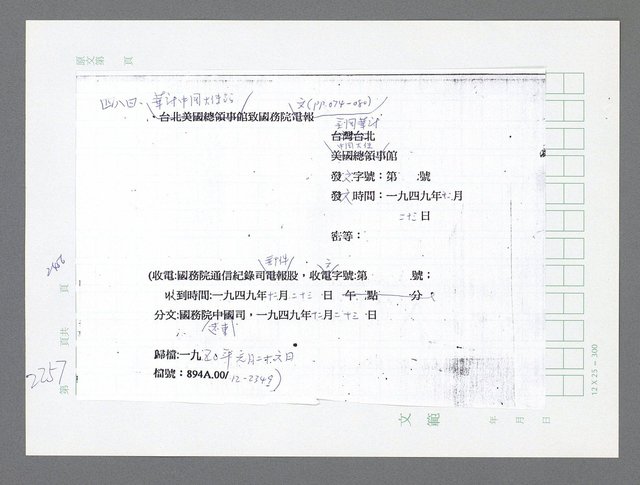 原文第 頁
四八四、華府中國大使館
文(pp.074-080)
·台北美國總領事館致國務院電報
美國華府
台灣台北
中國大使
美國總領事館
發文字號：第 號
發文時間：一九四九年十二月
二十三日
密等：
郵件 文
(收電:國務院通信紀錄司電報股，收電字號:第 號；
收到時間:一九四九年十二月二十三日 午 點 分；
分文:國務院中國司，一九四九年十二月二十三日
歸檔:一九五0年元月二十六日
檔號：894A.00/12-2349)
2456
頁
頁共
2257
第
12 X 25 - 300
文範
年 月 日